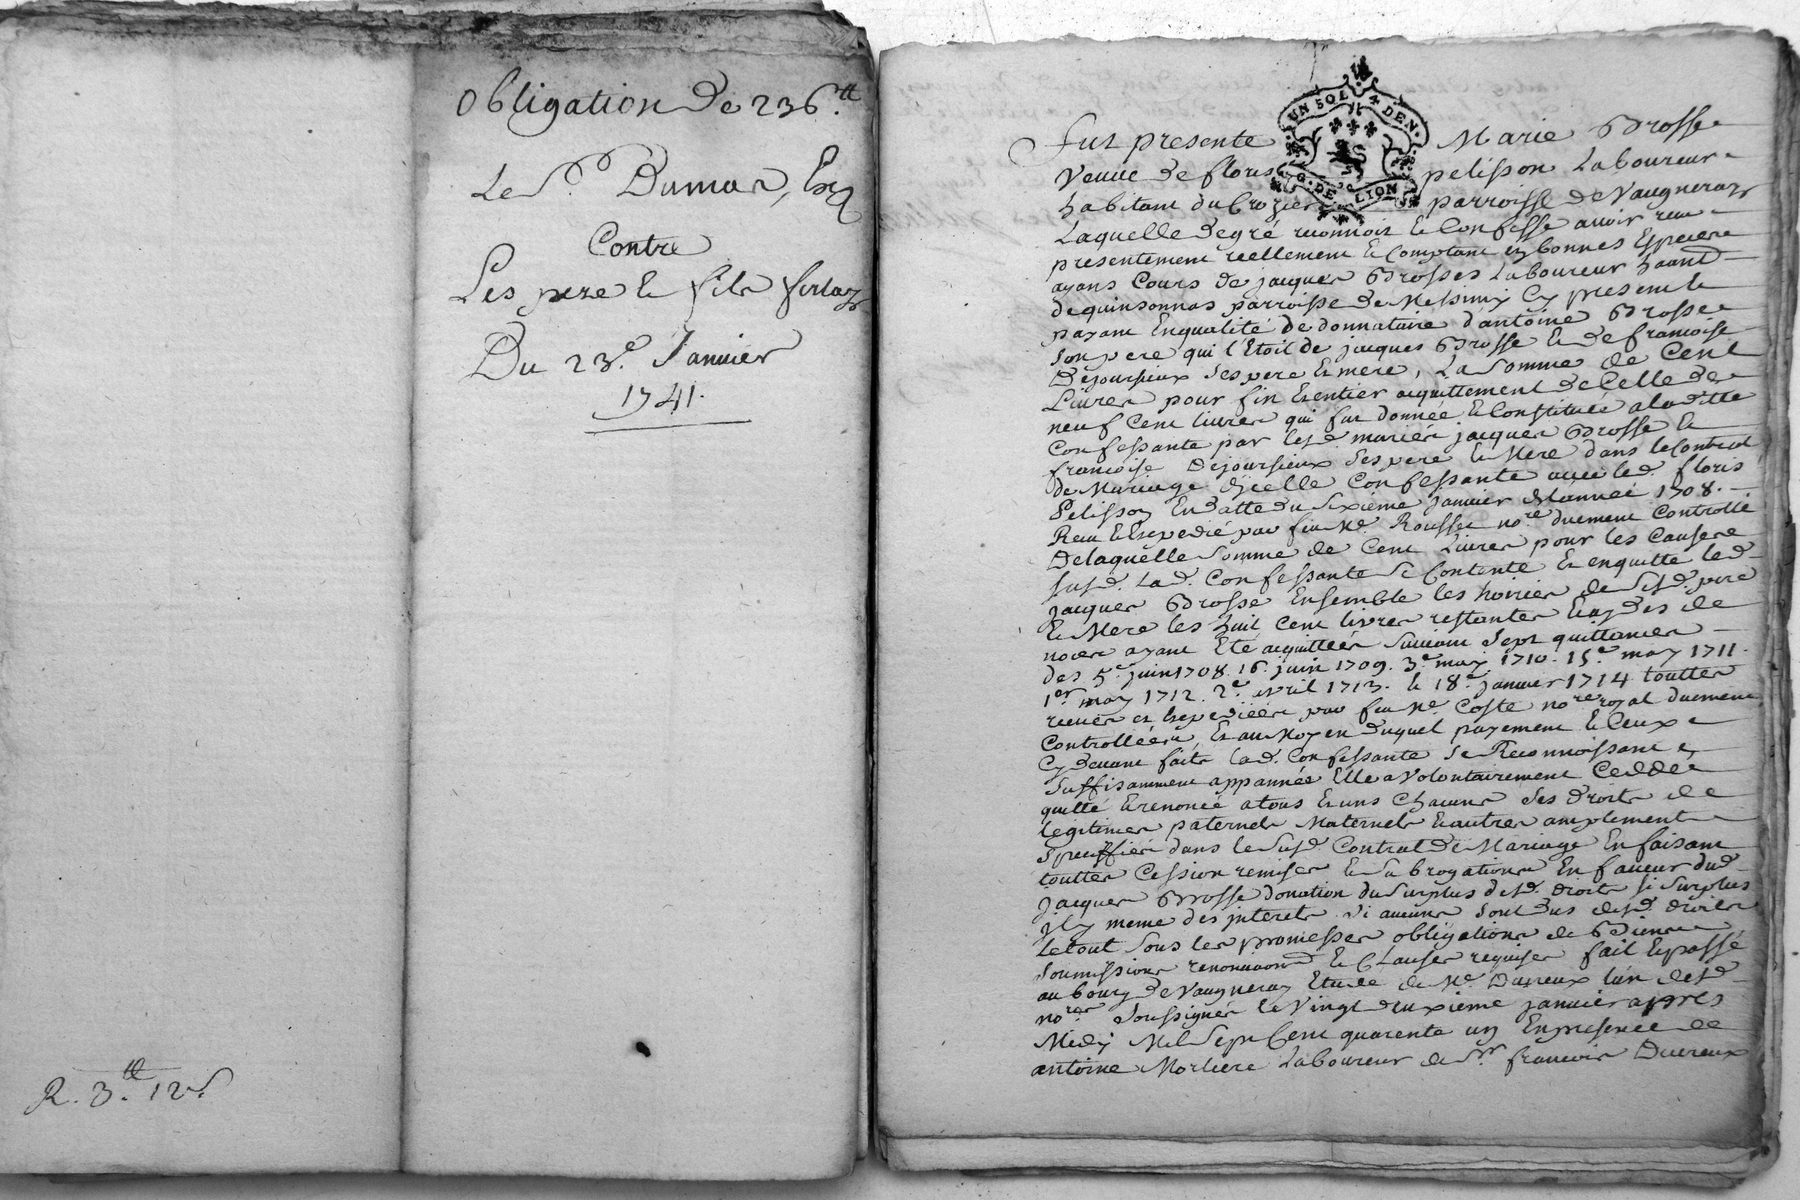 Obligation de 236.tt
Le Sr. Dumas,
Contre
Les pere & fils
Du 23.e Janvier
1741.
R. 3.tt 12s.
UN SOL 4 DEN.
G. DE LION
Fut presente Marie Brosse
Veuve de floris pelisson Laboureur
habitant du Crozier parroisse de Vaugneray
Laquelle degré reconnoit & Confesse avoir receu
presentement reellement & Comptant en bonnes Especes
ayans Cours de jacques Brosses Laboureur habitant
de quinsonnas parroisse de Messimy Cy present &
payant En qualité de donnataire d'antoine Brosse
Son pere qui l'Etoit de jacques Brosse & de francoise
Dejoursieux Ses pere & mere, La Somme de Cent
Livres pour fin & entier acquittement de Celle de
neuf Cent livres qui fut donnée & Constituée a la ditte
Confessante par lesd. mariés jacques Brosse &
francoise Dejoursieux Ses pere & Mere dans le Contrat
de Mariage d'icelle Confessante avec led. floris
Pelisson En datte du Sixième Janvier de l'année 1708.
Receu & Expedié par feu Me. Rousset nore. duement Controllé
De laquelle Somme de Cent Livres pour les Causes
susd. Lad. Confessante Se Contente & en quitte led.
jacques Brosse Ensemble les hoiries de Sesd. pere
& Mere les huit Cent livres restantes
noces ayant Eté acquittées Suivant Sept quittances
des 5.e juin 1708. 16. juin 1709. 3.e may 1710. 15.e may 1711.
1.er may 1712. 2.e avril 1713. & 18.e janvier 1714 toutes
receues et Expediées par feu Me. Coste nore. royal duement
Controllées & au Moyen duquel payement & Ceux
Cy devant faits lad. Confessante Se Reconnoissant
Suffisamment appannée Elle a Volontairement Ceddé
quitté & renoncé a tous & uns Chacuns Ses droits de
legitimes paternels Maternels & autres amplement
Speciffiés dans le Susd. Contrat de Mariage En faisant
toutes Cession remises & Subrogations En faveur dud.
Jacques Brosse donation du Surplus desd. droits si Surplus
il y meme des interets Si aucuns Sont dus desd. droits
Le tout Sous les promesses obligations de Biens
Soumissions renonciaons & Clauses requises fait & passé
au bourg de Vaugneray Etude de Me. Dureux l'un desd.
nores. Soussignés le Vingt deuxieme janvier apres
Midy Mil Sept Cent quarente un En presence de
antoine Morliere Laboureur & Sr. francois Ducreux